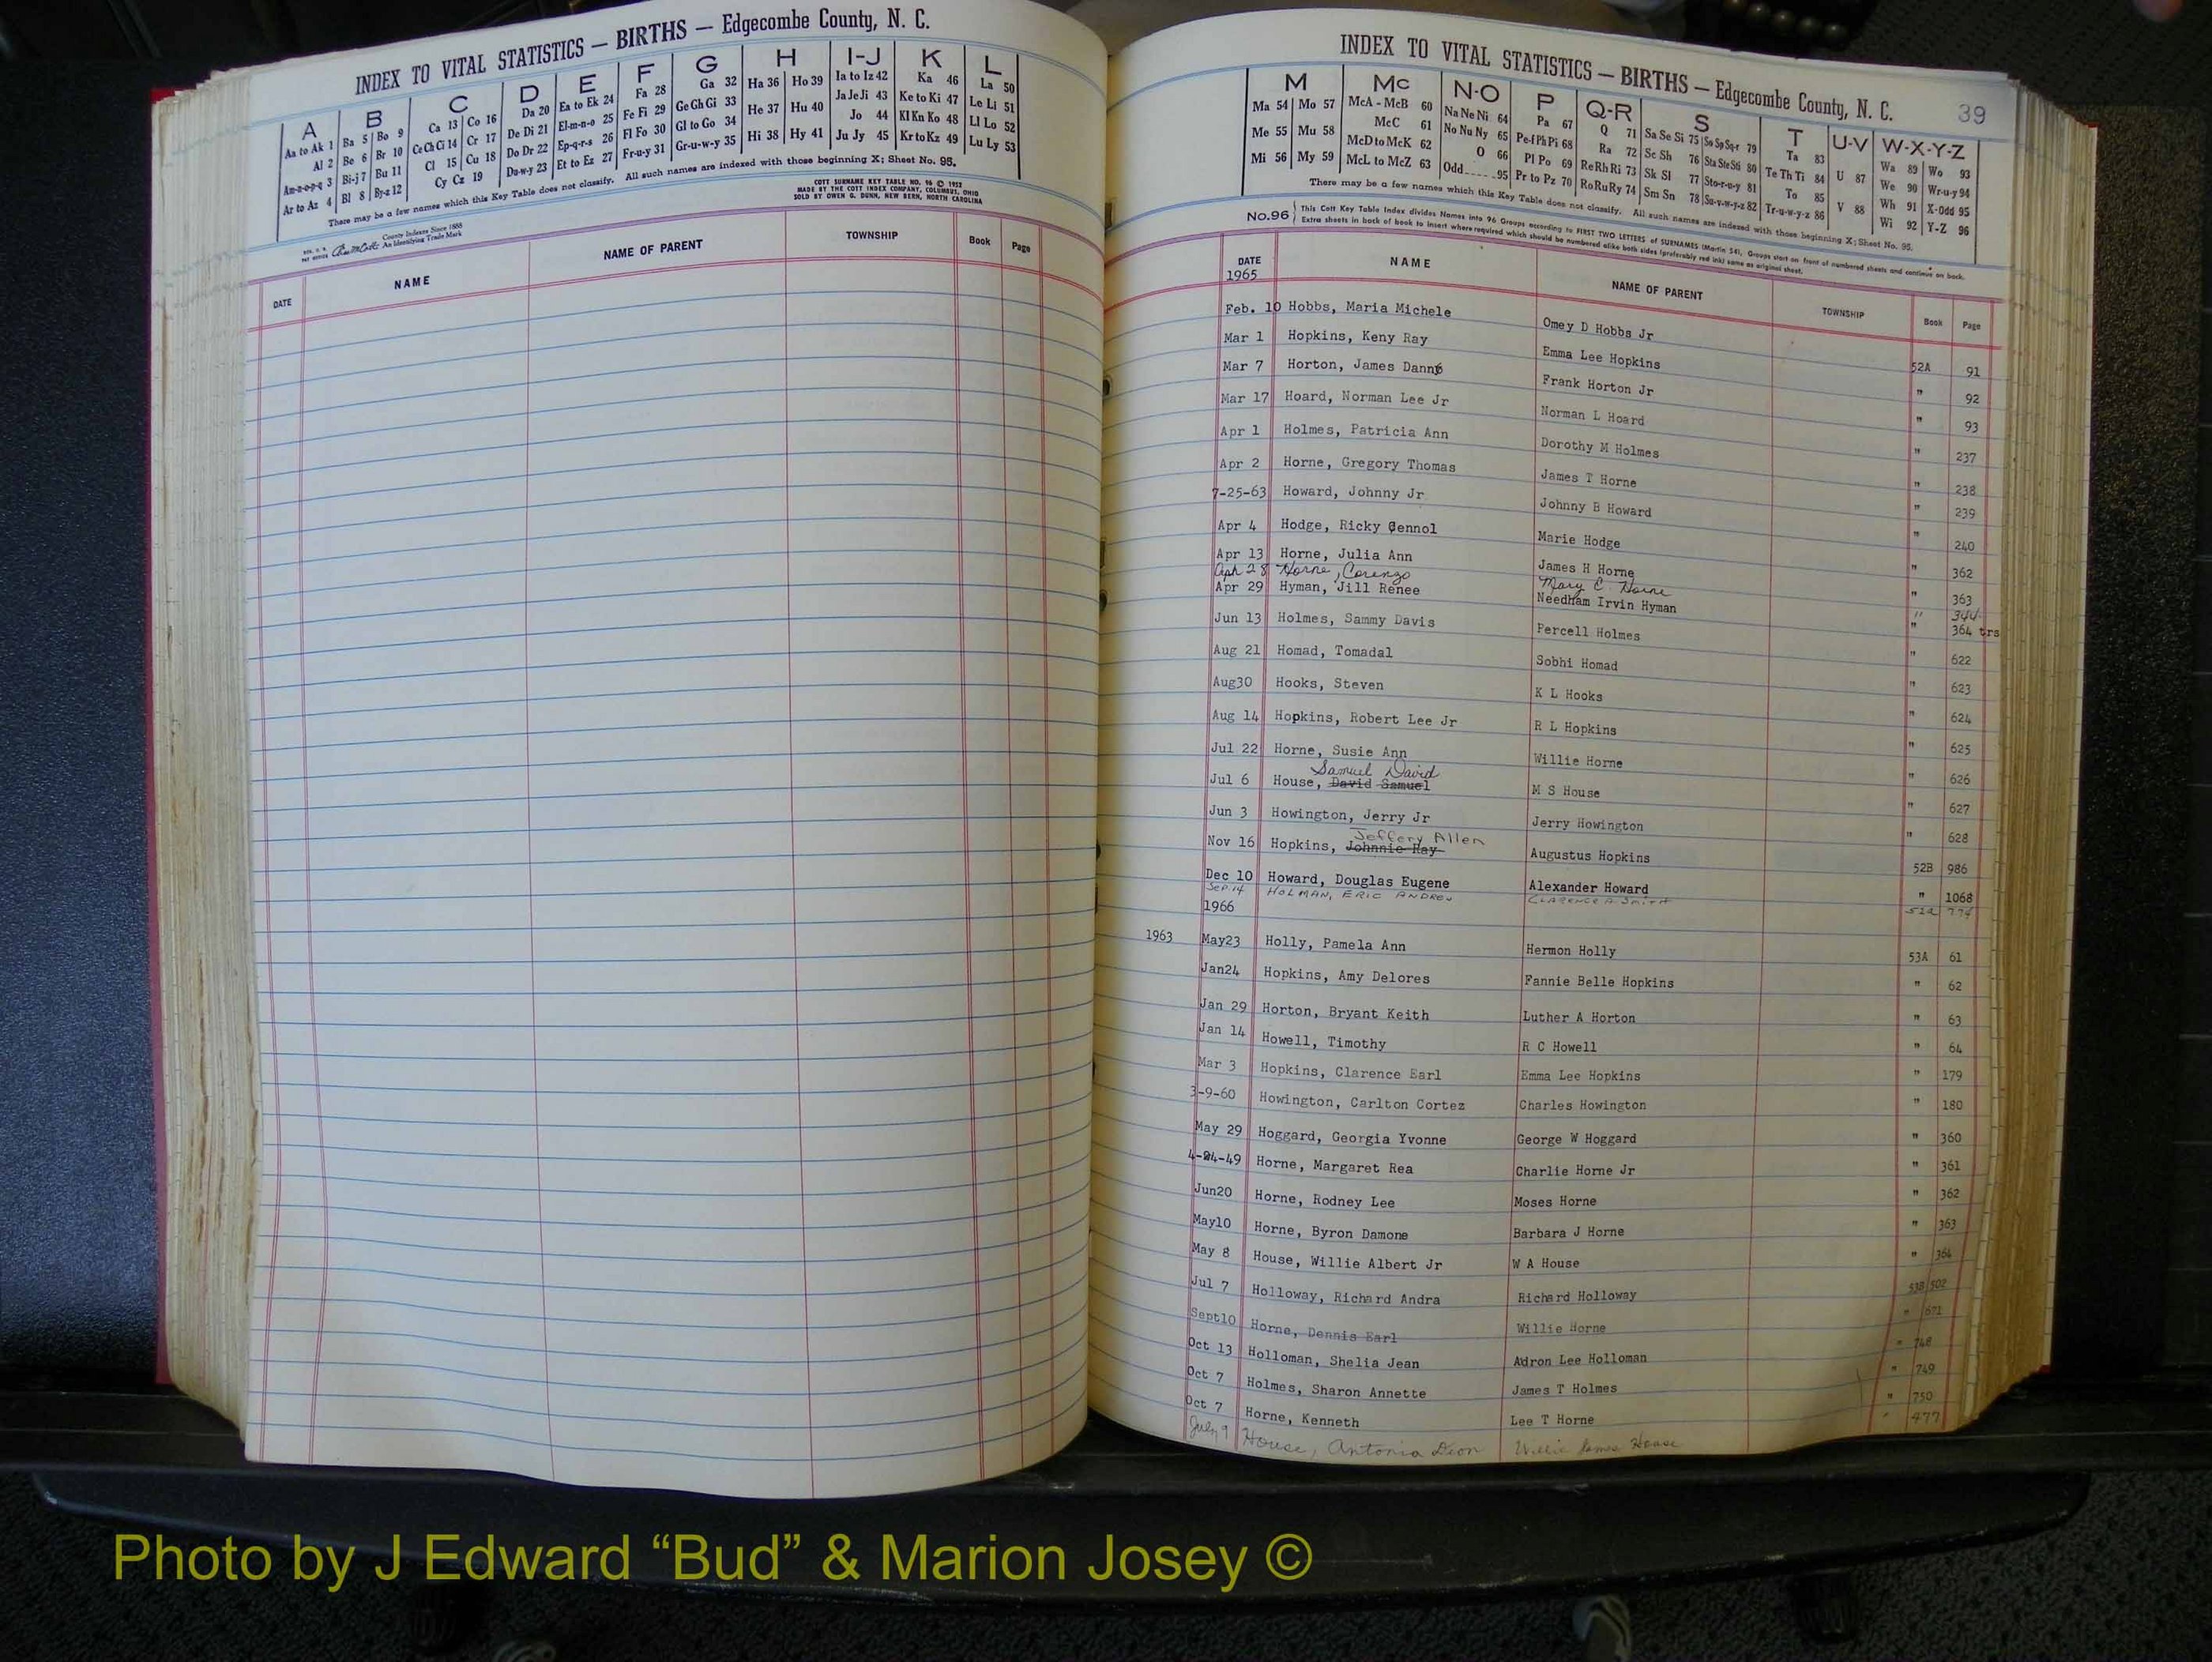 INDEX TO VITAL STATISTICS — BIRTHS — Edgecombe County, N. C.
A B C D E F G H I-J K L
Aa to Ak 1 Ba 5 Bo 9 Ca 13 Co 16 Da 20 Ea to Ek 24 Fa 28 Ga 32 Ha 36 Ho 39 Ia to Iz 42 Ka 46 La 50
Al 2 Be 6 Br 10 Ce Ch Ci 14 Cr 17 De Di 21 El-m-n-o 25 Fe Fi 29 Ge Gh Gi 33 He 37 Hu 40 Ja Je Ji 43 Ke to Ki 47 Le Li 51
Am-n-o-p-q 3 Bi-j 7 Bu 11 Cl 15 Cu 18 Do Dr 22 Ep-q-r-s 26 Fl Fo 30 Gl to Go 34 Hi 38 Hy 41 Jo 44 Kl Kn Ko 48 Ll Lo 52
Ar to Az 4 Bl 8 By-z 12 Cy Cz 19 Du-w-y 23 Et to Ez 27 Fr-u-y 31 Gr-u-w-y 35 Ju Jy 45 Kr to Kz 49 Lu Ly 53
There may be a few names which this Key Table does not classify. All such names are indexed with those beginning X; Sheet No. 95.
COTT SURNAME KEY TABLE NO. 96 © 1952
MADE BY THE COTT INDEX COMPANY, COLUMBUS, OHIO
SOLD BY OWEN G. DUNN, NEW BERN, NORTH CAROLINA
County Indexes Since 1888
An Identifying Trade Mark
DATE NAME NAME OF PARENT TOWNSHIP Book Page
INDEX TO VITAL STATISTICS — BIRTHS — Edgecombe County, N. C. 39
M Mc N-O P Q-R S T U-V W-X-Y-Z
Ma 54 Mo 57 McA - McB 60 Na Ne Ni 64 Pa 67 Q 71 Sa Se Si 75 So Sp Sq-r 79 Ta 83 Wa 89 Wo 93
Me 55 Mu 58 McC 61 No Nu Ny 65 Pe-f Ph Pi 68 Ra 72 Sc Sh 76 Sta Ste Sti 80 Te Th Ti 84 U 87 We 90 Wr-u-y 94
McD to McK 62 O 66 Pl Po 69 Re Rh Ri 73 Sk Sl 77 Sto-r-u-y 81 To 85 Wh 91 X-Odd 95
Mi 56 My 59 McL to McZ 63 Odd 95 Pr to Pz 70 Ro Ru Ry 74 Sm Sn 78 Su-v-w-y-z 82 Tr-u-w-y-z 86 V 88 Wi 92 Y-Z 96
There may be a few names which this Key Table does not classify. All such names are indexed with those beginning X; Sheet No. 95.
No.96 This Cott Key Table Index divides Names into 96 Groups according to FIRST TWO LETTERS of SURNAMES (Martin 54). Groups start on front of numbered sheets and continue on back.
Extra sheets in back of book to insert where required which should be numbered alike both sides (preferably red ink) same as original sheet.
DATE NAME NAME OF PARENT TOWNSHIP Book Page
1965
Feb. 10 Hobbs, Maria Michele Omey D Hobbs Jr 52A 91
Mar 1 Hopkins, Keny Ray Emma Lee Hopkins " 92
Mar 7 Horton, James Danny Frank Horton Jr " 93
Mar 17 Hoard, Norman Lee Jr Norman L Hoard " 237
Apr 1 Holmes, Patricia Ann Dorothy M Holmes " 238
Apr 2 Horne, Gregory Thomas James T Horne " 239
7-25-63 Howard, Johnny Jr Johnny B Howard " 240
Apr 4 Hodge, Ricky Gennol Marie Hodge " 362
Apr 13 Horne, Julia Ann James H Horne " 363
Aph 28 Horne, Corenzo Mary C. Horne " 344
Apr 29 Hyman, Jill Renee Needham Irvin Hyman " 364 trs
Jun 13 Holmes, Sammy Davis Percell Holmes " 622
Aug 21 Homad, Tomadal Sobhi Homad " 623
Aug30 Hooks, Steven K L Hooks " 624
Aug 14 Hopkins, Robert Lee Jr R L Hopkins " 625
Jul 22 Horne, Susie Ann Willie Horne " 626
Samuel David
Jul 6 House, David Samuel M S House " 627
Jun 3 Howington, Jerry Jr Jerry Howington " 628
Jeffery Allen
Nov 16 Hopkins, Johnnie Ray Augustus Hopkins 52B 986
Dec 10 Howard, Douglas Eugene Alexander Howard " 1068
Sep 14 HOLMAN, ERIC ANDREW CLARENCE A. SMITH 774
1966
1963 May23 Holly, Pamela Ann Hermon Holly 53A 61
Jan24 Hopkins, Amy Delores Fannie Belle Hopkins " 62
Jan 29 Horton, Bryant Keith Luther A Horton " 63
Jan 14 Howell, Timothy R C Howell " 64
Mar 3 Hopkins, Clarence Earl Emma Lee Hopkins " 179
3-9-60 Howington, Carlton Cortez Charles Howington " 180
May 29 Hoggard, Georgia Yvonne George W Hoggard " 360
4-24-49 Horne, Margaret Rea Charlie Horne Jr " 361
Jun20 Horne, Rodney Lee Moses Horne " 362
May10 Horne, Byron Damone Barbara J Horne " 363
May 8 House, Willie Albert Jr W A House " 364
Jul 7 Holloway, Richard Andra Richard Holloway 53B 502
Sept10 Horne, Dennis Earl Willie Horne " 671
Oct 13 Holloman, Shelia Jean Adron Lee Holloman " 748
Oct 7 Holmes, Sharon Annette James T Holmes " 749
Oct 7 Horne, Kenneth Lee T Horne " 750
July 9 House, Antonia Dion Willie James House " 477
Photo by J Edward “Bud” & Marion Josey ©